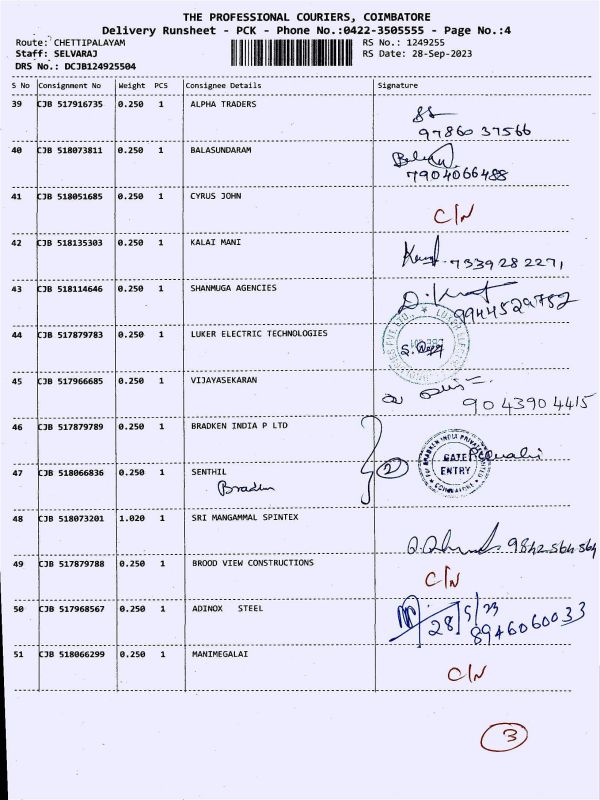 THE PROFESSIONAL COURIERS, COIMBATORE
Delivery Runsheet - PCK - Phone No.:0422-3505555 - Page No.:4
Route: CHETTIPALAYAM RS No.: 1249255
Staff: SELVARAJ RS Date: 28-Sep-2023
DRS No.: DCJB124925504
S No Consignment No Weight PCS Consignee Details Signature
39 CJB 517916735 0.250 1 ALPHA TRADERS
97860 37566
40 CJB 518073811 0.250 1 BALASUNDARAM
7904066488
41 CJB 518051685 0.250 1 CYRUS JOHN C/N
42 CJB 518135303 0.250 1 KALAI MANI 7339282271
43 CJB 518114646 0.250 1 SHANMUGA AGENCIES
9944529752
44 CJB 517879783 0.250 1 LUKER ELECTRIC TECHNOLOGIES
45 CJB 517966685 0.250 1 VIJAYASEKARAN
9043904415
46 CJB 517879789 0.250 1 BRADKEN INDIA P LTD
BRADKEN INDIA PRIVATE LIMITED
GATE
ENTRY
COIMBATORE
2
47 CJB 518066836 0.250 1 SENTHIL
Bradken
48 CJB 518073201 1.020 1 SRI MANGAMMAL SPINTEX
9842564564
49 CJB 517879788 0.250 1 BROOD VIEW CONSTRUCTIONS C/N
50 CJB 517968567 0.250 1 ADINOX STEEL
28/9/23
8946060033
51 CJB 518066299 0.250 1 MANIMEGALAI C/N
3